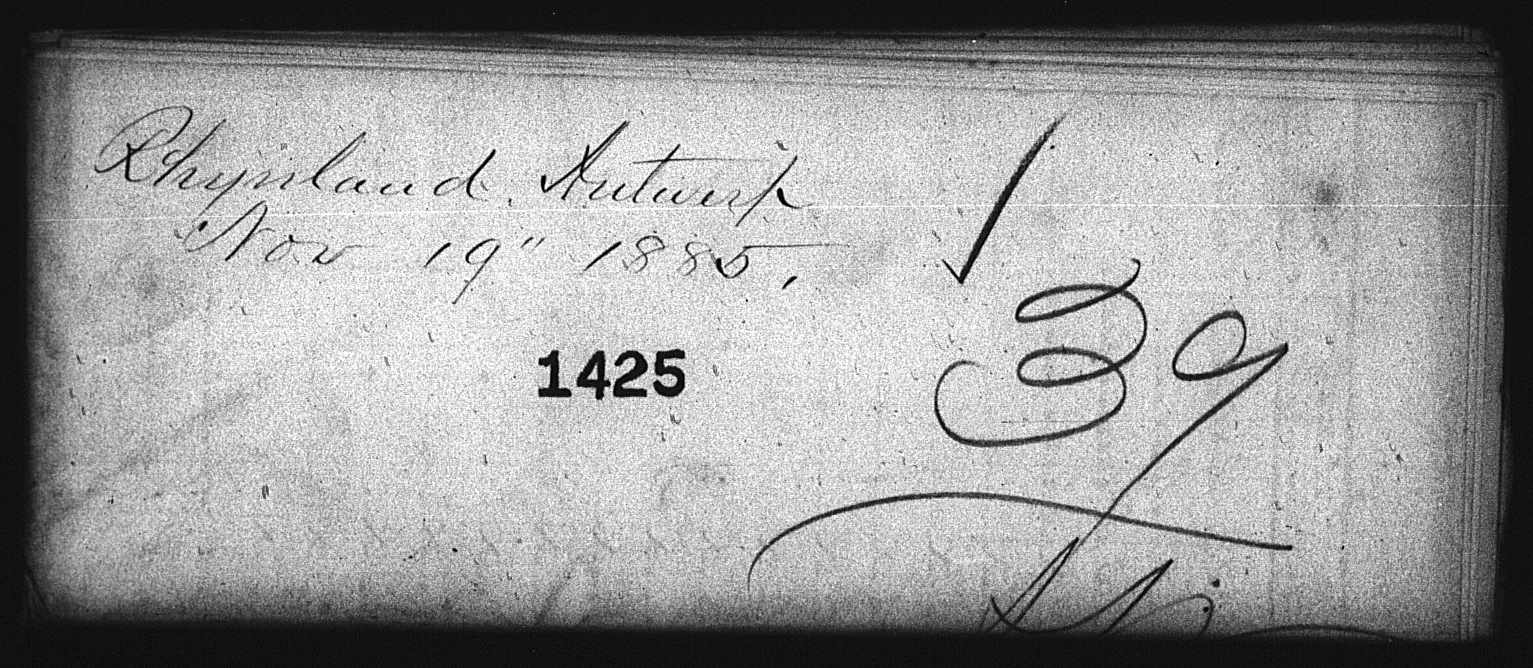 Rhynland Antwerp
Nov 19" 1885,
1425
39